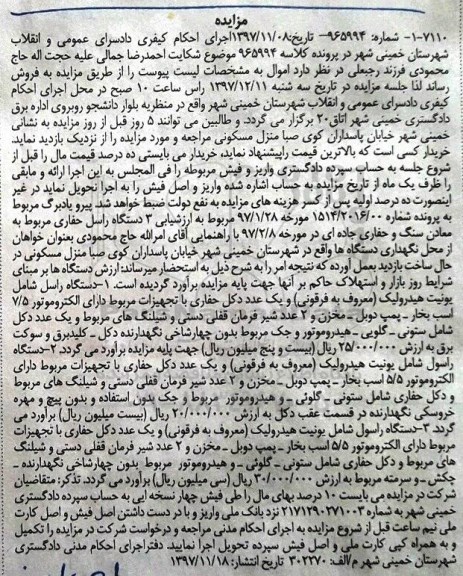 مزایده
۱-۷۱۱۰- شماره: ۹۶۵۹۹۴- تاریخ:۱۳۹۷/۱۱/۰۸اجرای احکام کیفری دادسرای عمومی و انقلاب
شهرستان خمینی شهر در پرونده کلاسه ۹۶۵۹۹۴ موضوع شکایت احمدرضا جمالی علیه حجت اله حاج
محمودی فرزند رجبعلی در نظر دارد اموال به مشخصات لیست پیوست را از طریق مزایده به فروش
رساند لذا جلسه مزایده در تاریخ سه شنبه ۱۳۹۷/۱۲/۱۱ راس ساعت ۱۰ صبح در محل اجرای احکام
کیفری دادسرای عمومی و انقلاب شهرستان خمینی شهر واقع در منظریه بلوار دانشجو روبروی اداره برق
دادگستری خمینی شهر اتاق۲۰ برگزار می گردد. و طالبین می توانند ۵ روز قبل از روز مزایده به نشانی
خمینی شهر خیابان پاسداران کوی صبا منزل مسکونی مراجعه و مورد مزایده را از نزدیک بازدید نماید.
خریدار کسی است که بالاترین قیمت راپیشنهاد نماید، خریدار می بایستی ده درصد قیمت مال را قبل از
شروع جلسه به حساب سپرده دادگستری واریز و فیش مربوطه را فی المجلس به این اجرا ارائه و مابقی
را ظرف یک ماه از تاریخ مزایده به حساب اشاره شده واریز و اصل فیش را به اجرا تحویل نماید در غیر
اینصورت ده درصد اولیه پس از کسر هزینه های مزایده به نفع دولت ضبط خواهد شد. پیرو یادبرگ مربوط
به پرونده شماره ۱۵۱۴/۲۰۱۶/۰۰ مورخه ۹۷/۱/۲۸ مربوط به ارزشیابی ۳ دستگاه راسل حفاری مربوط به
معادن سنگ و حفاری جاده ای در مورخه ۹۷/۲/۸ با راهنمایی آقای امرالله حاج محمودی بعنوان خواهان
از محل نگهداری دستگاه ها واقع در شهرستان خمینی شهر خیابان پاسداران کوی صبا منزل مسکونی در
حال ساخت بازدید بعمل آورده که نتیجه امر را به شرح ذیل به استحضار میرساند: ارزش دستگاه ها بر مبنای
شرایط روز بازار و استهلاک حاکم بر آنها جهت پایه مزایده برآورد گردیده است. ۱-دستگاه راسل شامل
یونیت هیدرولیک (معروف به فرقونی) و یک عدد دکل حفاری با تجهیزات مربوط دارای الکتروموتور ۷/۵
اسب بخار – پمپ دوبل – مخزن و ۲ عدد شیر فرمان قفلی دستی و شیلنگ های مربوط و یک عدد دکل
شامل ستونی – گلویی – هیدروموتور و جک مربوط بدون چهارشاخی نگهدارنده دکل – کلیدبرق و سوکت
برق به ارزش ۲۵/۰۰۰/۰۰۰ ریال (بیست و پنج میلیون ریال) جهت پایه مزایده برآورد می گردد. ۲-دستگاه
راسول شامل یونیت هیدرولیک (معروف به فرقونی) و یک عدد دکل حفاری با تجهیزات مربوط دارای
الکتروموتور ۵/۵ اسب بخار – پمپ دوبل – مخزن و ۲ عدد شیر فرمان قفلی دستی و شیلنگ های مربوط
و دکل حفاری شامل ستونی – گلوئی – و هیدروموتور مربوط و جک بدون استفاده و بدون پیچ و مهره
خروسکی نگهدارنده در قسمت عقب دکل به ارزش ۲۰/۰۰۰/۰۰۰ ریال (بیست میلیون ریال) برآورد می
گردد. ۳-دستگاه راسول شامل یونیت هیدرولیک (معروف به فرقونی) و یک عدد دکل حفاری با تجهیزات
مربوط دارای الکتروموتور ۵/۵ اسب بخار – پمپ دوبل – مخزن و ۲ عدد شیر فرمان قفلی دستی و شیلنگ
های مربوط و دکل حفاری شامل ستونی – گلوئی – و هیدروموتور مربوط بدون چهارشاخی نگهدارنده –
چکش – و سرمته مربوط به ارزش ۳۰/۰۰۰/۰۰۰ ریال (سی میلیون ریال) برآورد می گردد. تذکر: متقاضیان
شرکت در مزایده می بایست ۱۰ درصد بهای مال را طی فیش چهار نسخه ایی به حساب سپرده دادگستری
خمینی شهر به شماره ۲۱۷۱۲۹۰۲۷۱۰۰۳ نزد بانک ملی واریز و با در دست داشتن اصل فیش و اصل کارت
ملی نیم ساعت قبل از شروع مزایده به اجرای احکام مدنی مراجعه و درخواست شرکت در مزایده را تکمیل
و به همراه کپی کارت ملی و اصل فیش سپرده تحویل اجرا نمایید. دفتراجرای احکام مدنی دادگستری
شهرستان خمینی شهر م/الف: ۳۰۲۲۷۰ تاریخ انتشار: ۱۳۹۷/۱۱/۱۸